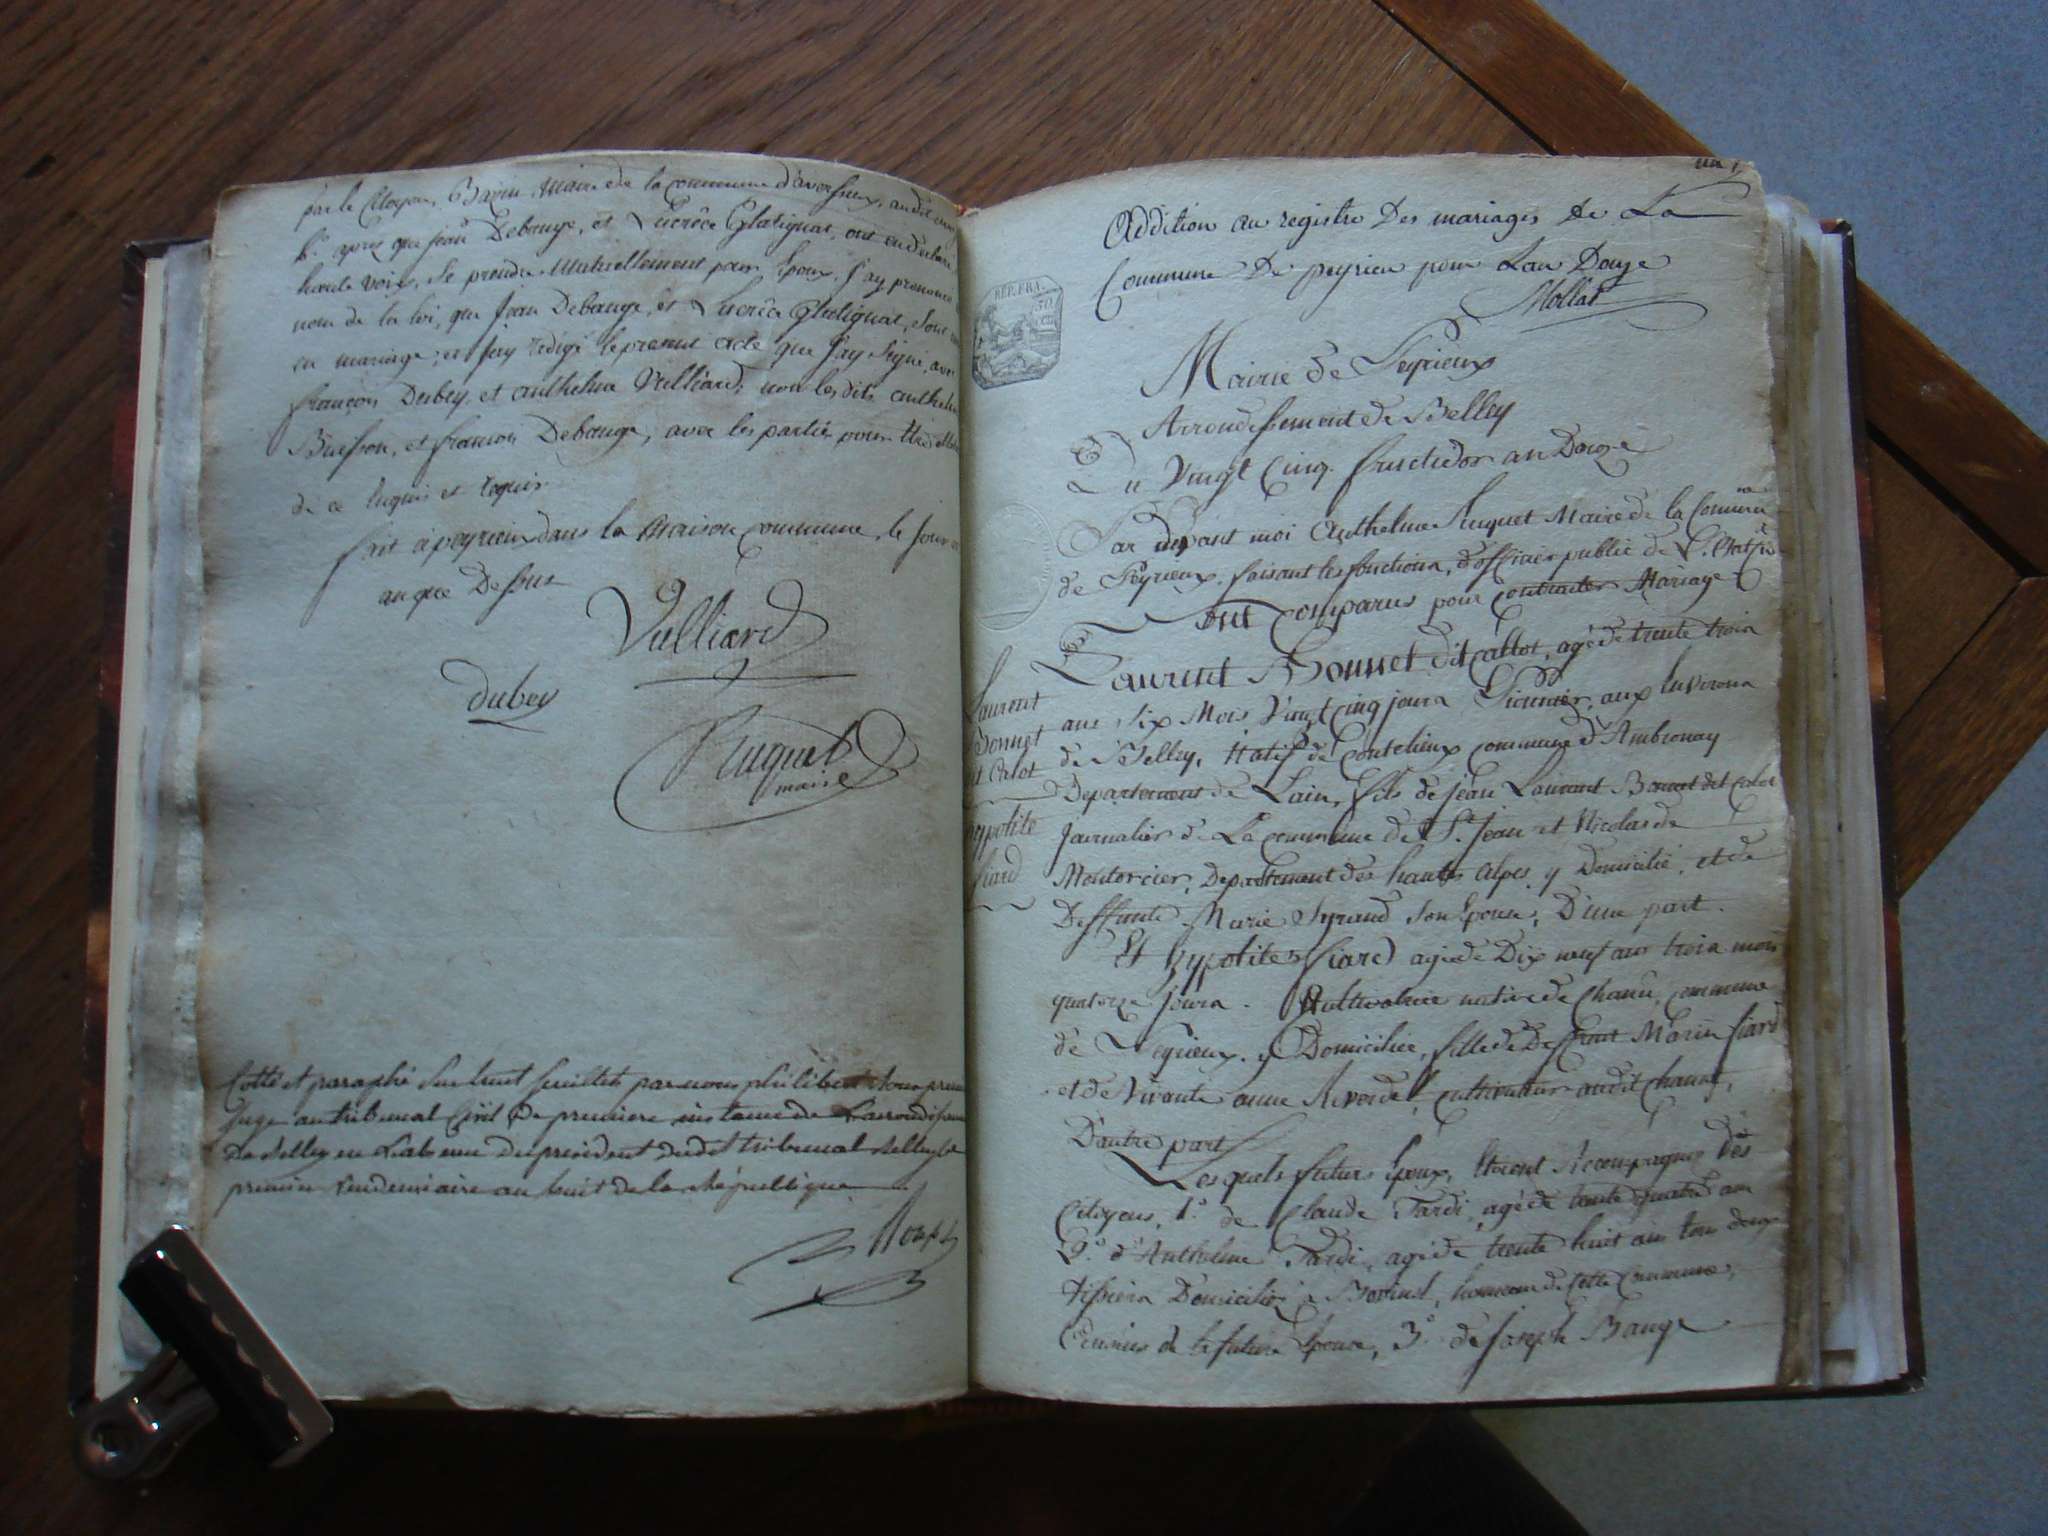 par le Citoyen Bayin Maire de la commune d'avessieux, audit
b.° apres que Jean Debauge, et Lucrèce Glatignat, ont
haute voix, se prendre Mutuellement pour Epoux, J'ay prononcé
nom de la loi, que Jean Debauge, et Lucrèce Glatignat, sont
en mariage; et J'ay redigé le present acte que J'ay signé, avec
françois Dubey et anthelme Vulliard, non lesdits anthelme
Buisson, et francois Debauge, avec les parties pour
de ce Enquis et requis
fait à peyrieux dans la Maison Commune le Jour et
an que Dessus
Vulliard
dubey
Huguet
maire
Cotté et paraphé sur huit feuillets par nous philibert premier
Juge au tribunal Civil De premiere instance de Larrondissement
De Belley en L'absence du president dudit tribunal Belley le
premier vendemiaire an huit de la République
un
Addition au registre Des mariages de La
Commune De peyrieu pour Lan Douze
Mollat
REP. FRA.
Mairie de Peyrieux
Arrondissement de Belley
Du Vingt Cinq fructidor an Douze
Par devant moi Anthelme Huguet Maire de la Commune
de Peyrieux, faisant les fonctions, d'officier public de L'Etat
Ont Comparus pour Contracter Mariage
Laurent Bonnet dit Callot, agé de trente trois
ans six Mois Vingt Cinq jours Pionnier, aux Environs
de Belley, Natif de commune d'Ambronay
Departement de Lain, fils de Jean Laurent Bonnet dit Calot
Journalier de La commune de St. Jean et Nicolas de
Montorcier, Departement des hautes Alpes, y Domicilié, et de
Deffunte Marie Eyraud son Epouse, D'une part.
Et hypolite fiard agée de Dix neuf ans trois mois
quatorze jours. Cultivatrice native de Chanu, commune
de Peyrieux, y Domiciliée, fille de Deffunt Marin fiard
et de Vivante anne Reverdel, cultivateur audit Chanu,
D'autre part
Lesquels futurs Epoux, Etoient Accompagnés des
Citoyens, 1.° de Claude Tardi, agé de trente quatre ans
2.° d'Anthelme Tardi, agé de trente huit ans tous deux
tissiers Domiciliés à Bovinel, hameau de Cette Commune,
Cousins de la future Epouse, 3.° de Joseph Bauge
Laurent
Bonnet
dit Calot
hyppolite
fiard